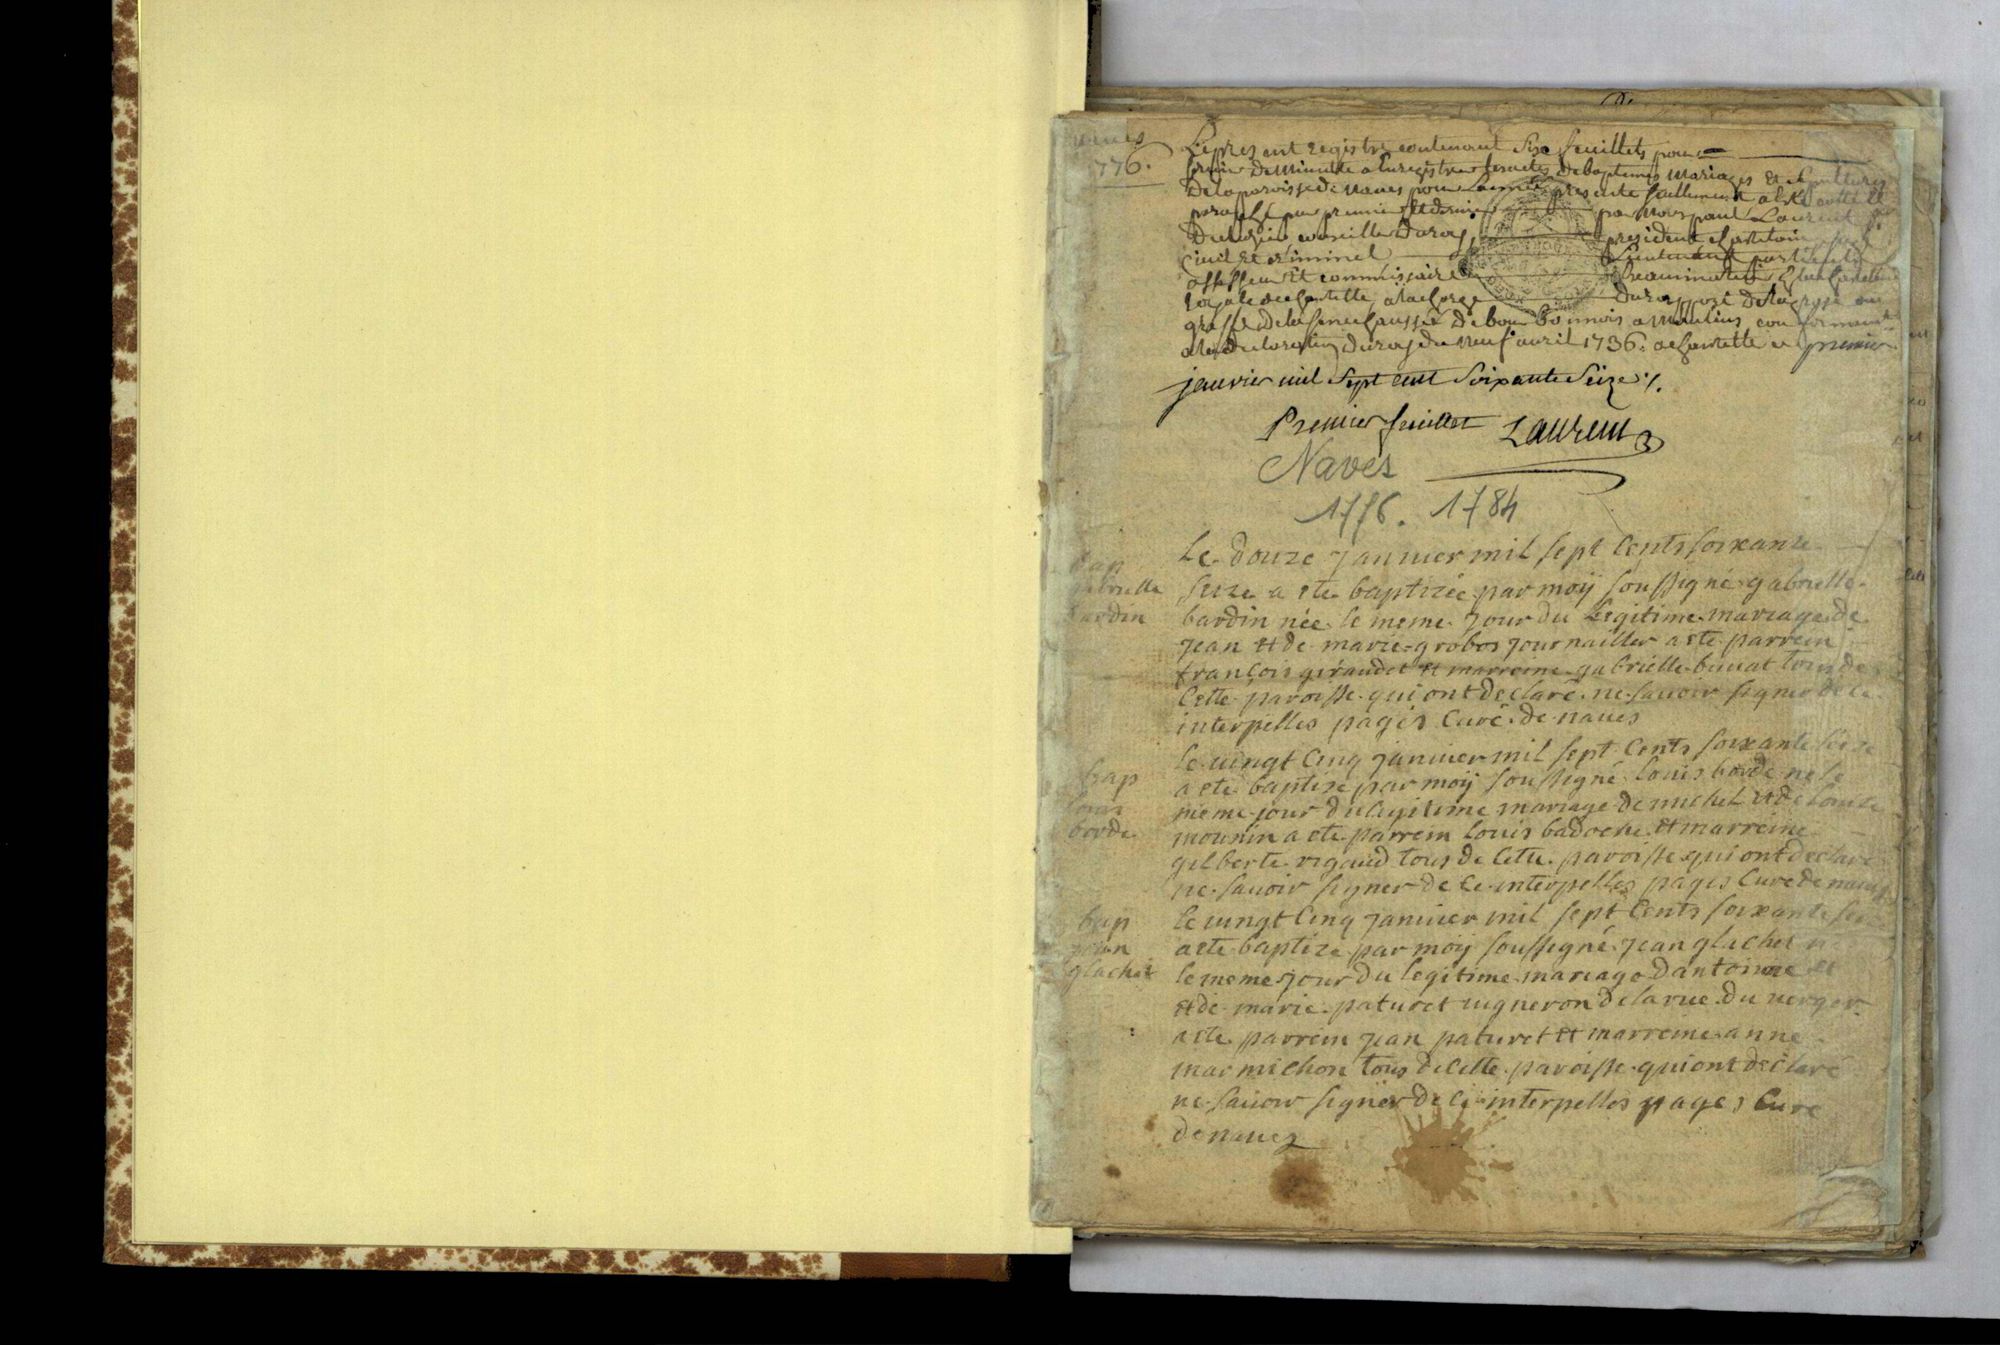 naves
1776.
Le present registre contenant six feuillets pour
servir de Minutte a Enregistrer les actes de baptemes Mariages Et sepultures
de la paroisse de naves pour Lannée presente
paraphé par premier Et dernier par Nous paul Laurent
conseiller du roy, president chatelain
Civil Et criminel Lieutenant particulier
assesseur Et commissaire Examinateur
royale de chantelle, a la charge du rapport de la grosse au
greffe de la senechaussée de bourbonnois a Moulins conformement
a la declaration du roy du neuf avril 1736. a chantelle ce premier
janvier mil sept cent soixante seize ./.
Premier feuillet Laurent
Naves
1776. 1784
bap
gabrielle
bardin
Le douze janvier mil sept cents soixante
seize a ete baptizée par moy soussigné gabrielle
bardin née le meme jour du legitime mariage de
jean et de marie grobos journaillier a ete parrein
françois giraudet et marreine gabrielle buvat tous de
cette paroisse qui ont declaré ne savoir signer de ce
interpelles pages curé de naves
bap
louis
borde
le vingt cinq janvier mil sept cents soixante seize
a ete baptize par moy soussigné louis borde né le
meme jour du legitime mariage de michel et de louise
mounin a ete parrein louis badoche et marreine
gilberte rigaud tous de cette paroisse qui ont declaré
ne savoir signer de ce interpelles pages curé de naves
bap
jean
glachet
le vingt cinq janvier mil sept cents soixante seize
a ete baptize par moy soussigné jean glachet né
le meme jour du legitime mariage d'antoine
et de marie paturet vigneron de la rue du verger
a ete parrein jean paturet et marreine anne
marmichon tous de cette paroisse qui ont declaré
ne savoir signer de ce interpelles pages curé
de naves